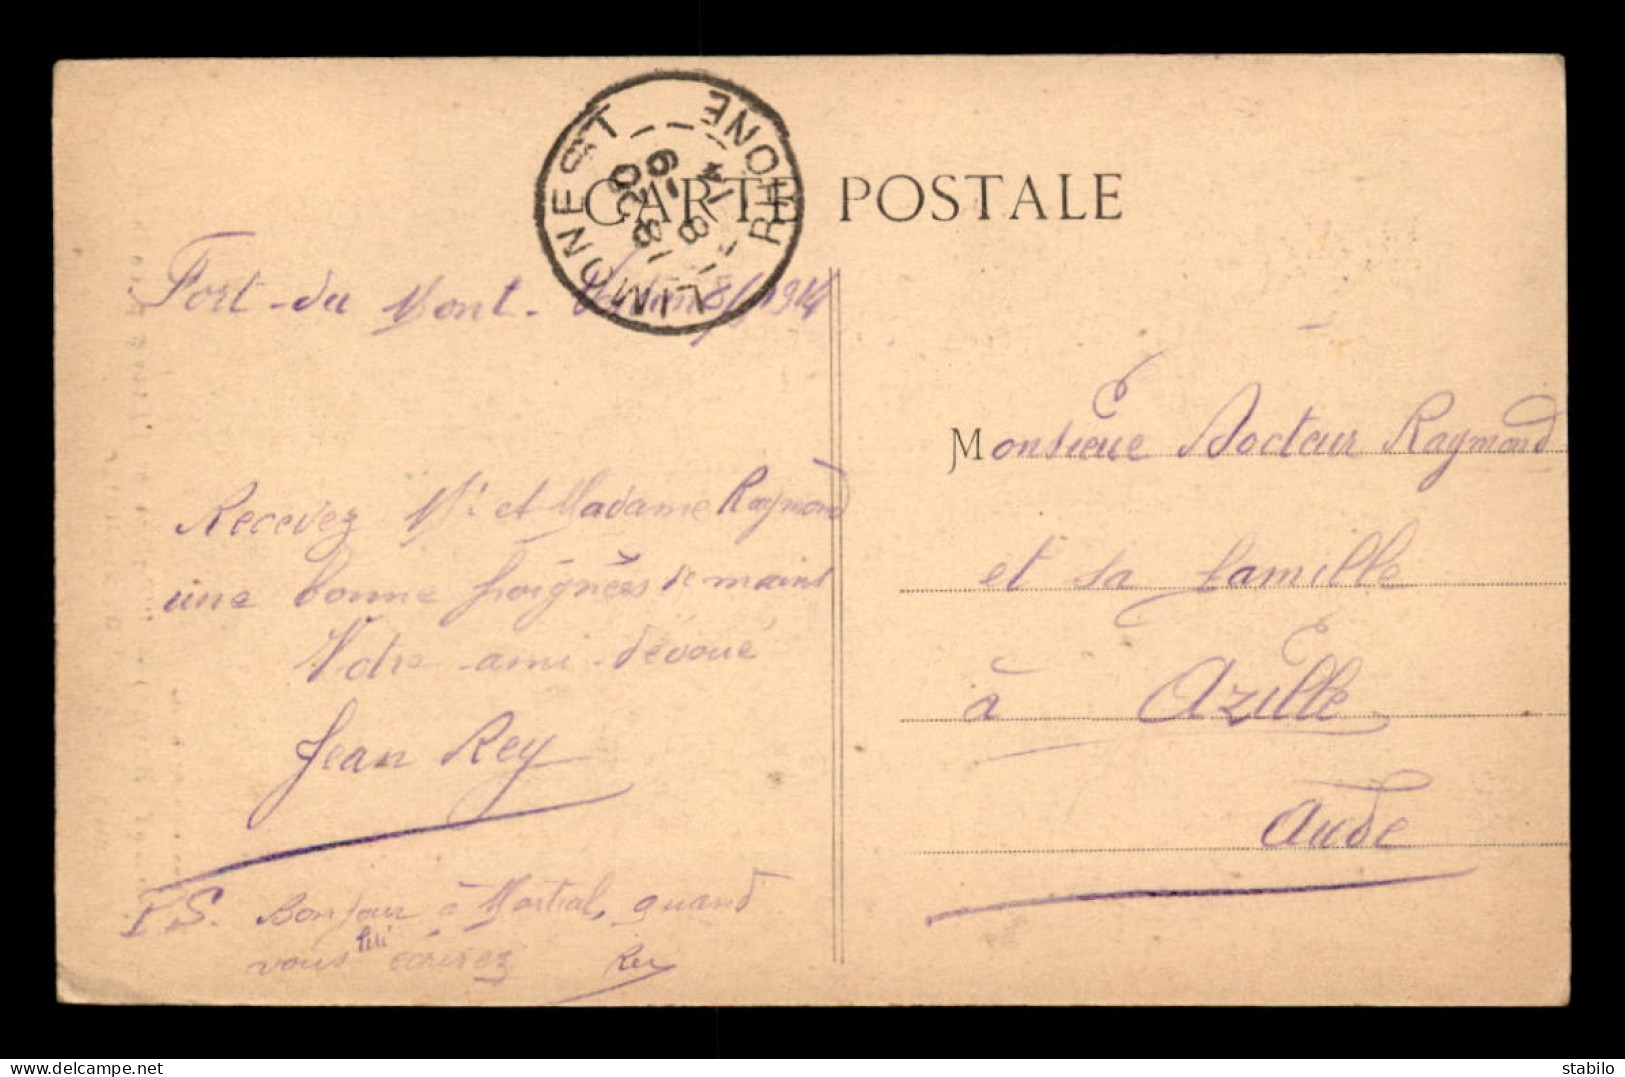 CARTE POSTALE
LIMONEST RHONE
18 30
6-8
14
Fort du Mont Verdun 8/6 1914
Recevez Mr et Madame Raymond
une bonne poignées de mains
Votre ami dévoué
Jean Rey
PS. Bonjour à Martial, quand
vous lui écrirez Rey
Monsieur Docteur Raymond
et sa famille
à Azille
Aude
https://www.delcampe.net
stabilo